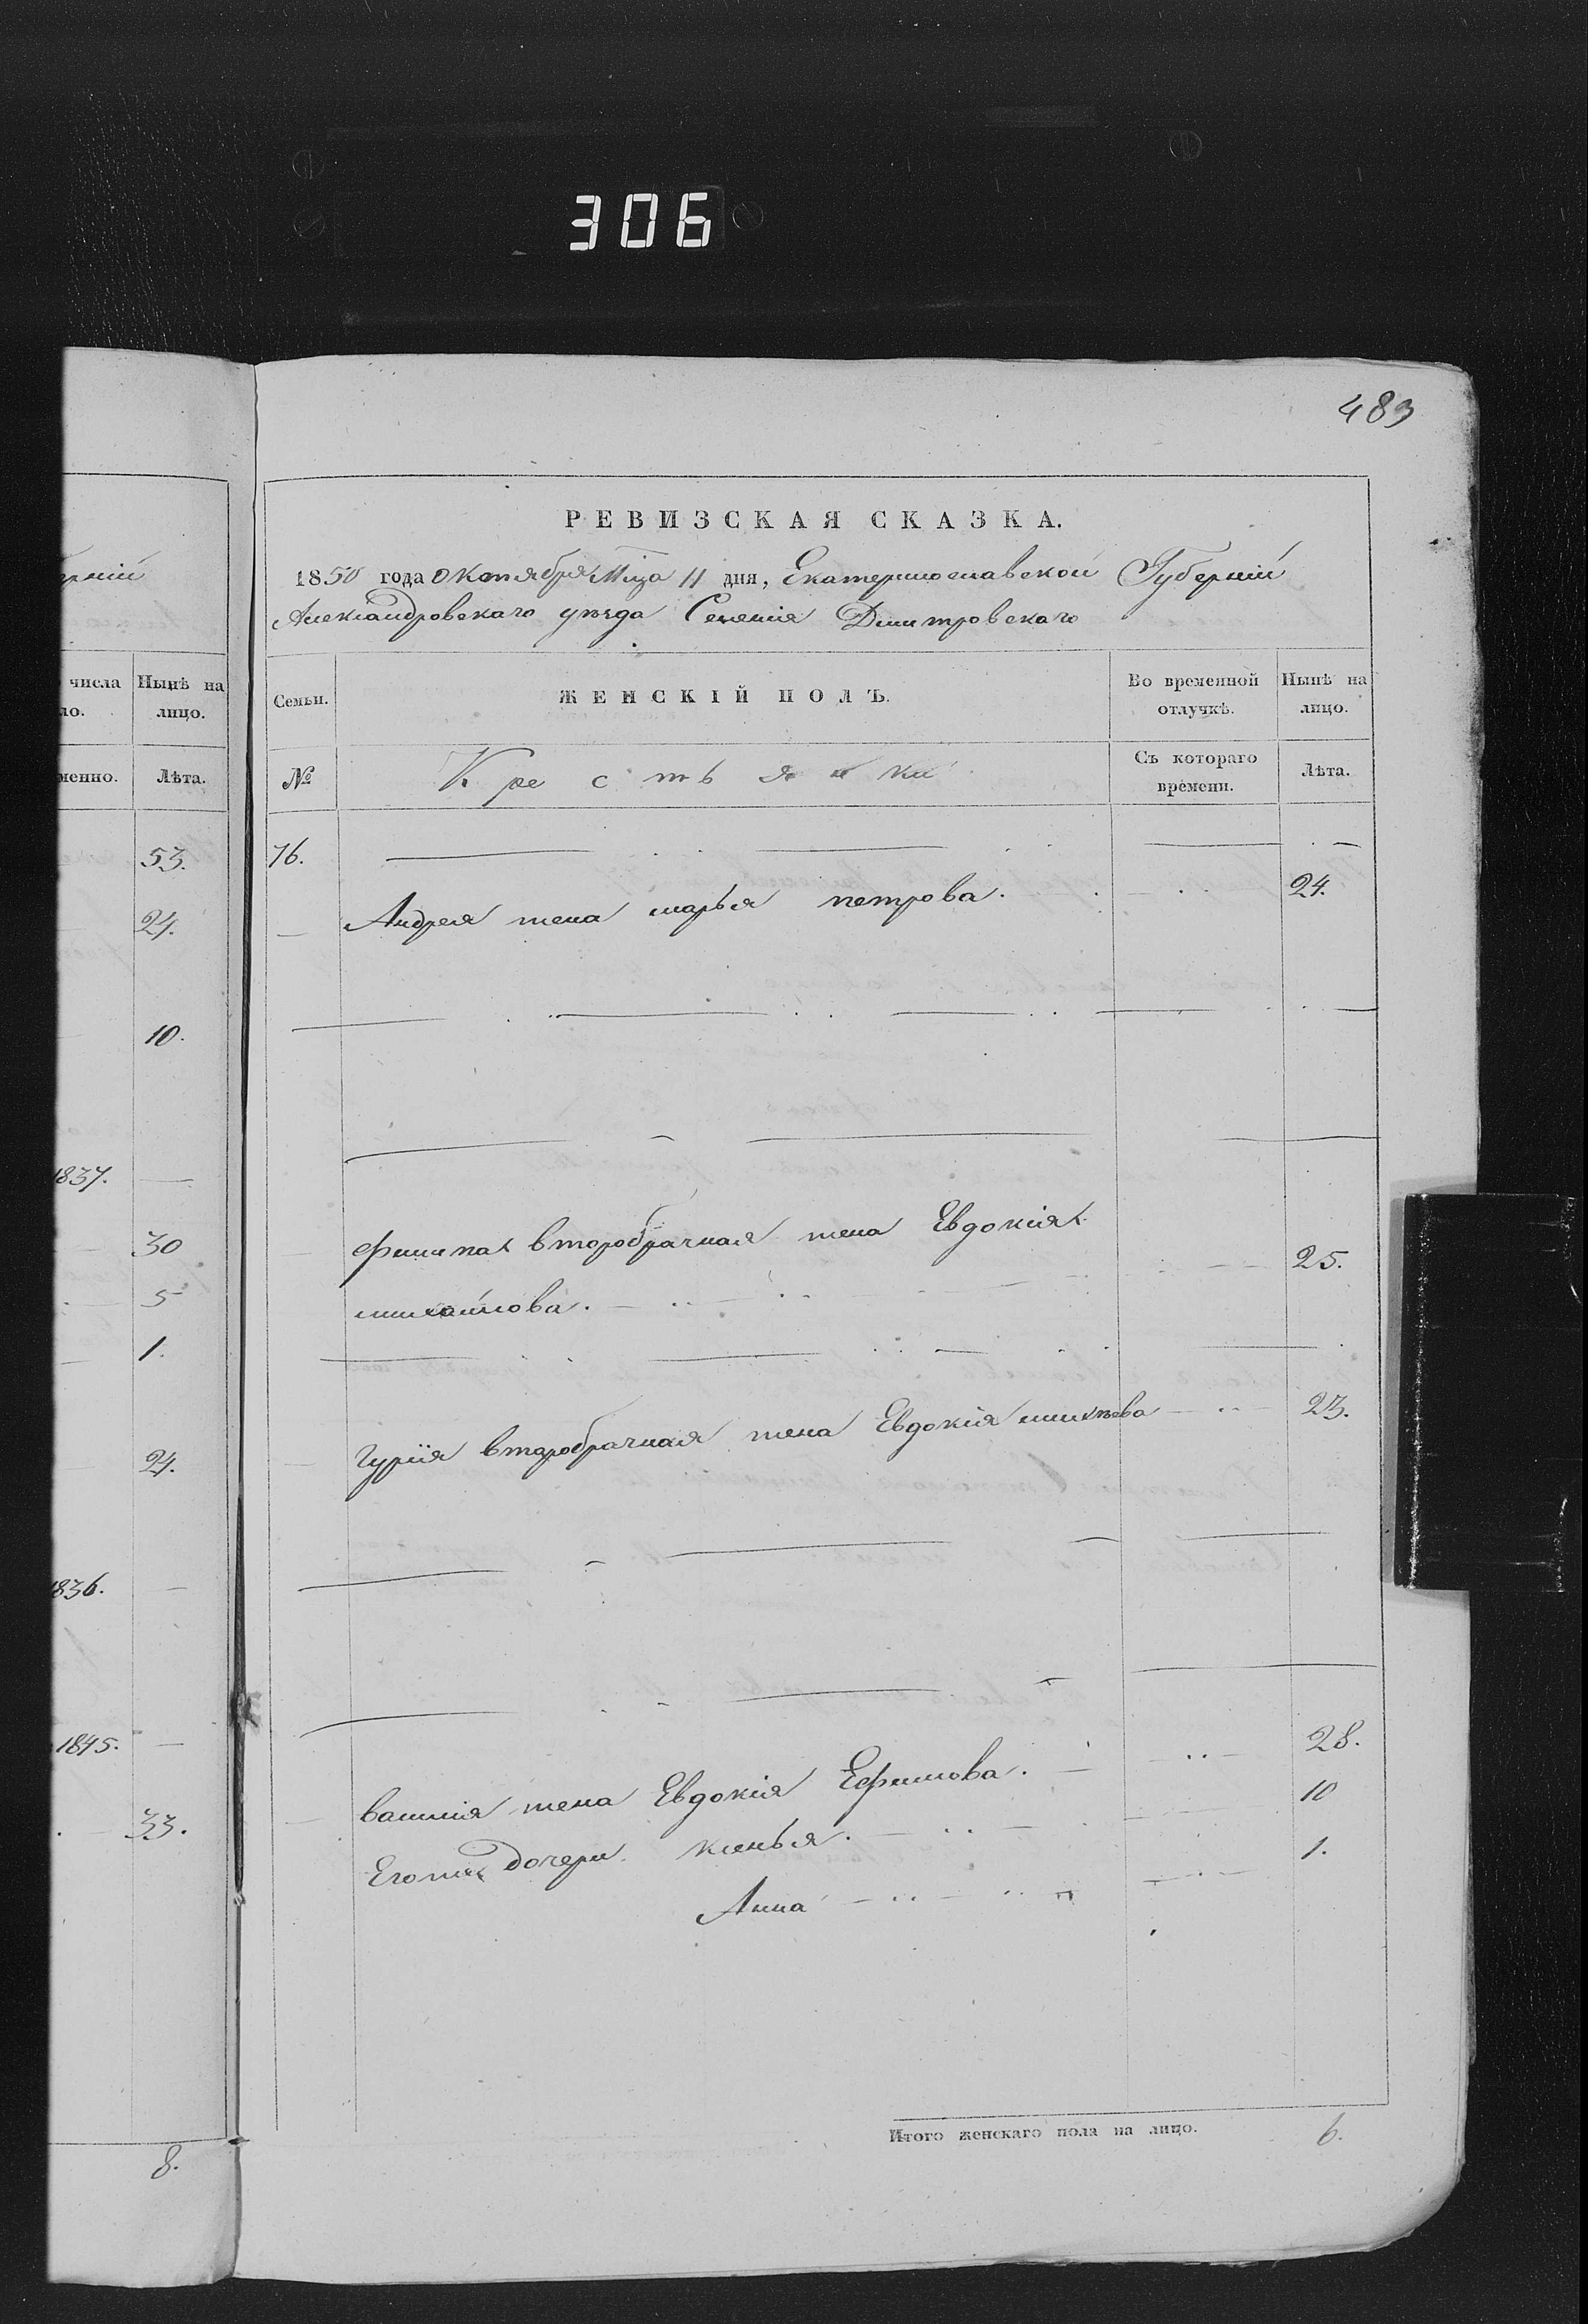 306
483
РЕВИЗСКАЯ СКАЗКА.
1850 года октября Мца 11 дня, Екатеринославской Губерніи
Александровскаго уѣзда Селенія Дмитровскаго
числа
ло.
Нынѣ на
лицо.
менно.
Лѣта.
Семьи.
ЖЕНСКІЙ ПОЛЪ.
Во временной
отлучкѣ.
Нынѣ на
лицо.
№
Крестьянки
Съ котораго
времени.
Лѣта.
53.
24.
10.
1837.
30
5
1.
24.
1836.
1845.
33.
8.
76.
Андрея жена марья петрова. 24.
филипа второбрачная жена Евдокія
михайлова. 25.
Гурія второбрачная жена Евдокія михѣева 23.
василія жена Евдокія Ефимова. 28.
Егоже дочери ксенья. 10
Анна 1.
Итого женскаго пола на лицо. 6.